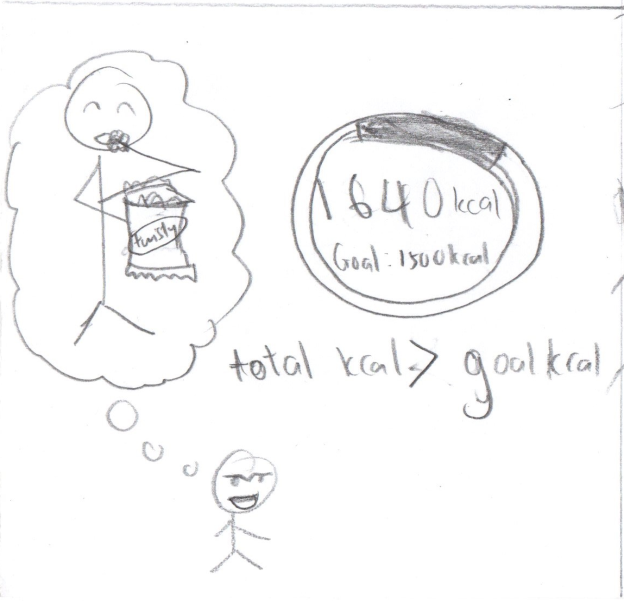 1640 kcal
Goal: 1500 kcal
total kcal > goal kcal